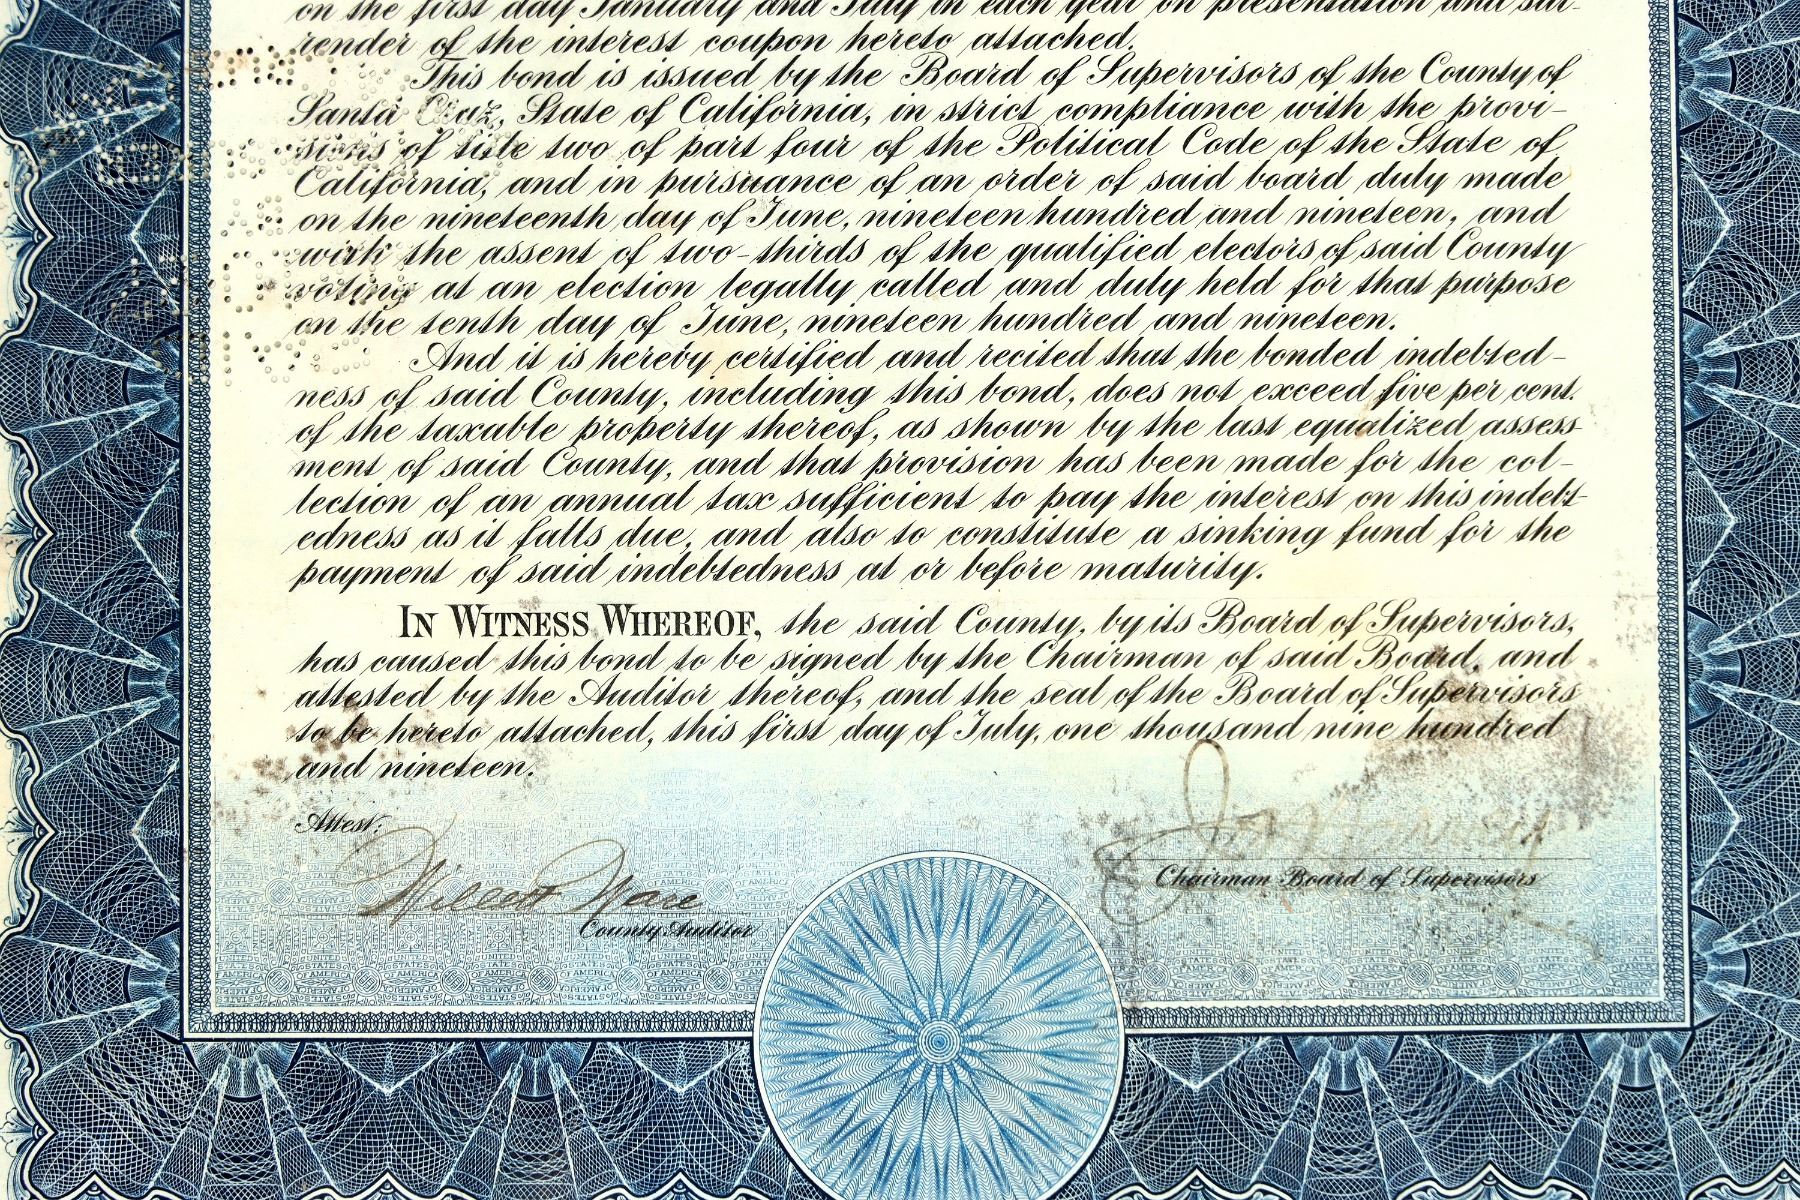 on the first day January and July in each year on presentation and sur-
render of the interest coupon hereto attached.
This bond is issued by the Board of Supervisors of the County of
Santa Cruz, State of California, in strict compliance with the provi-
sions of title two of part four of the Political Code of the State of
California, and in pursuance of an order of said board duly made
on the nineteenth day of June, nineteen hundred and nineteen, and
with the assent of two-thirds of the qualified electors of said County
voting at an election legally called and duly held for that purpose
on the tenth day of June, nineteen hundred and nineteen.
And it is hereby certified and recited that the bonded indebted-
ness of said County, including this bond, does not exceed five per cent.
of the taxable property thereof, as shown by the last equalized assess-
ment of said County, and that provision has been made for the col-
lection of an annual tax sufficient to pay the interest on this indebt-
edness as it falls due, and also to constitute a sinking fund for the
payment of said indebtedness at or before maturity.
IN WITNESS WHEREOF, the said County, by its Board of Supervisors,
has caused this bond to be signed by the Chairman of said Board, and
attested by the Auditor thereof, and the seal of the Board of Supervisors
to be hereto attached, this first day of July, one thousand nine hundred
and nineteen.
Attest:
Chairman Board of Supervisors
County Auditor
UNITED STATES OF AMERICA